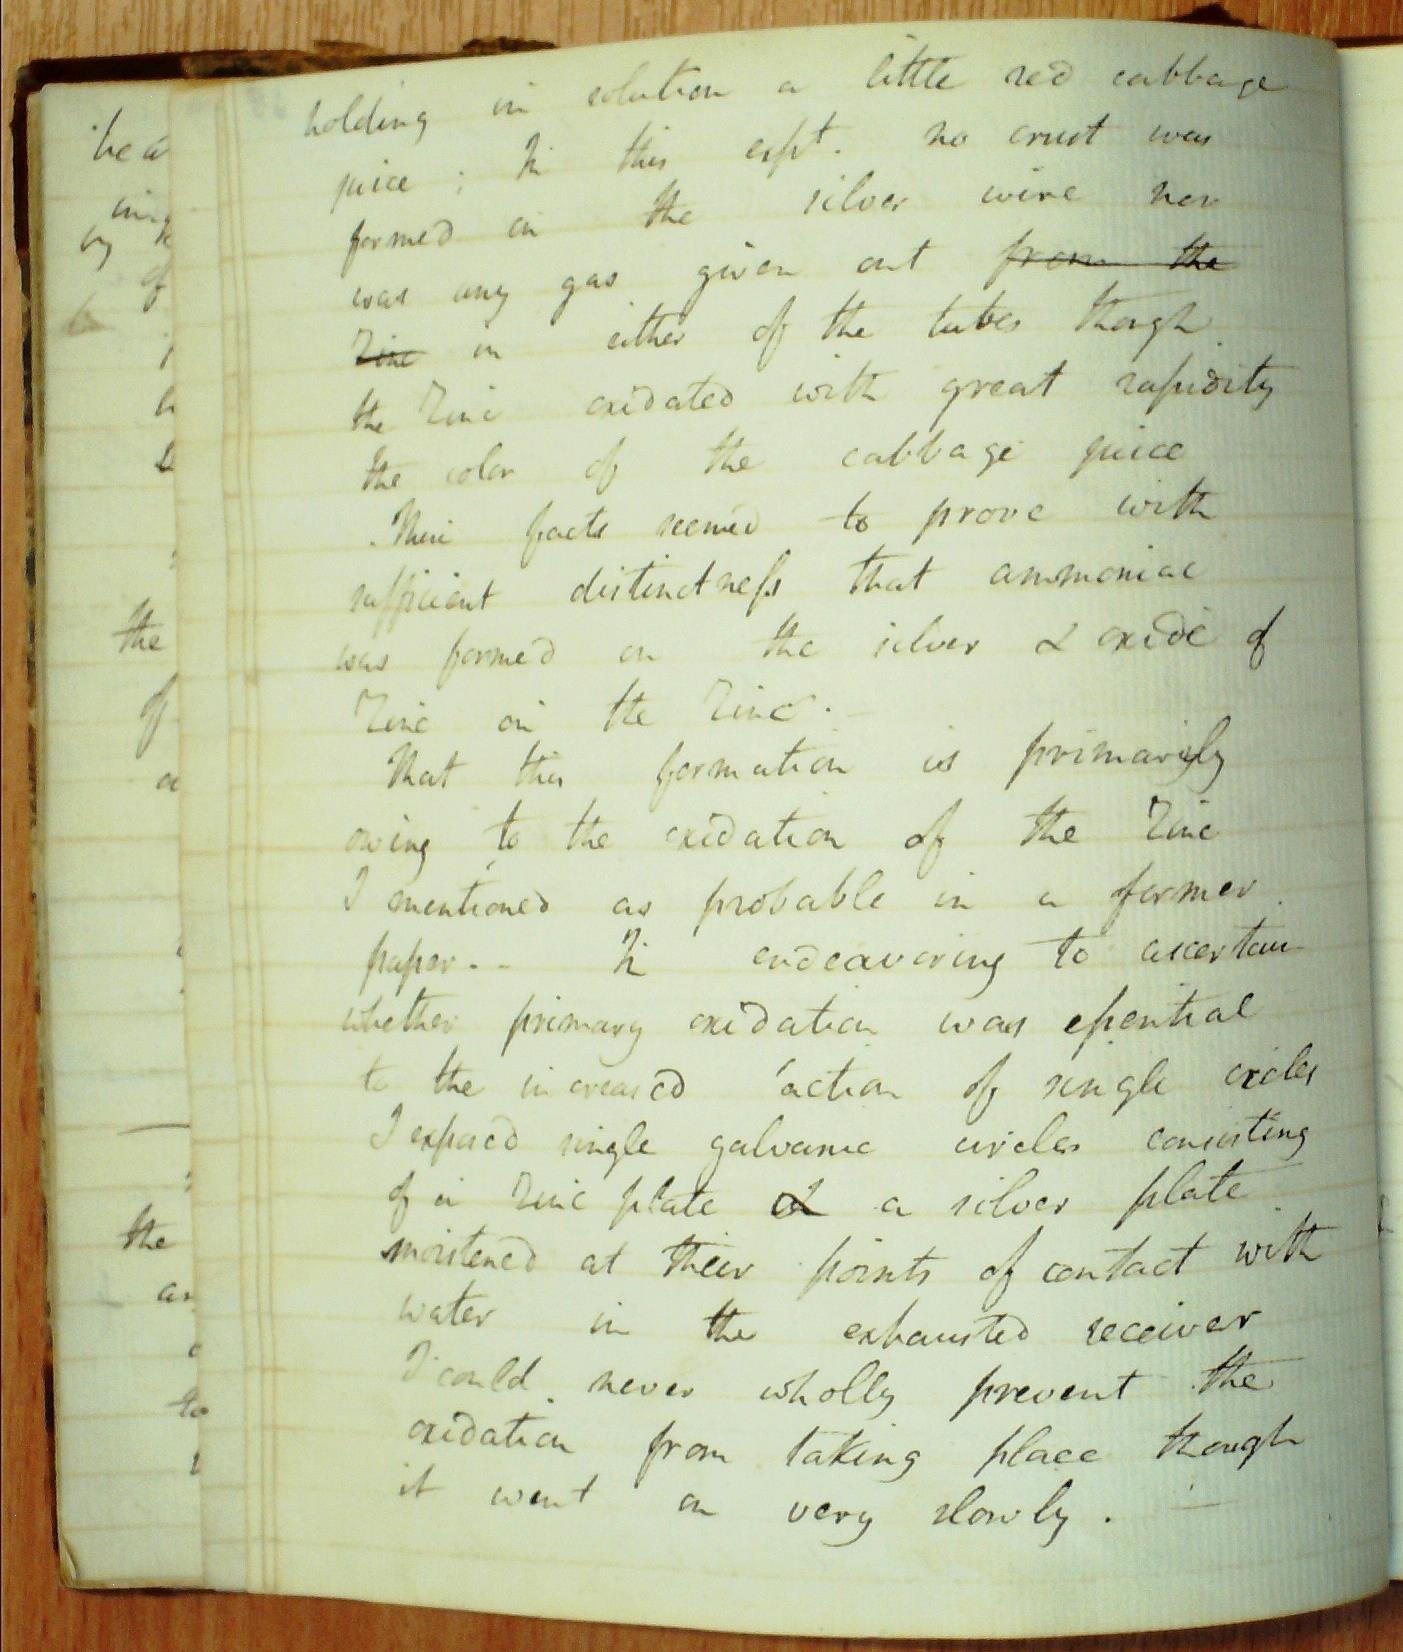 holding in solution a little red cabbage
juice ; In this expt. no crust was
formed on the silver wire nor
was any gas given out from the
Zinc in either of the tubes though
the Zinc oxidated with great rapidity
the color of the cabbage juice
. These facts seemed to prove with
sufficient distinctness that ammoniac
was formed on the silver & oxide of
Zinc on the Zinc. -
That this formation is primarily
owing to the oxidation of the Zinc
I mentioned as probable in a former
paper. - In endeavoring to ascertain
whether primary oxidation was essential
to the increased action of single circles
I exposed single galvanic circles consisting
of a Zinc plate & a silver plate
moistened at their points of contact with
water in the exhausted receiver
I could never wholly prevent the
oxidation from taking place though
it went on very slowly . -
the
of
the
to